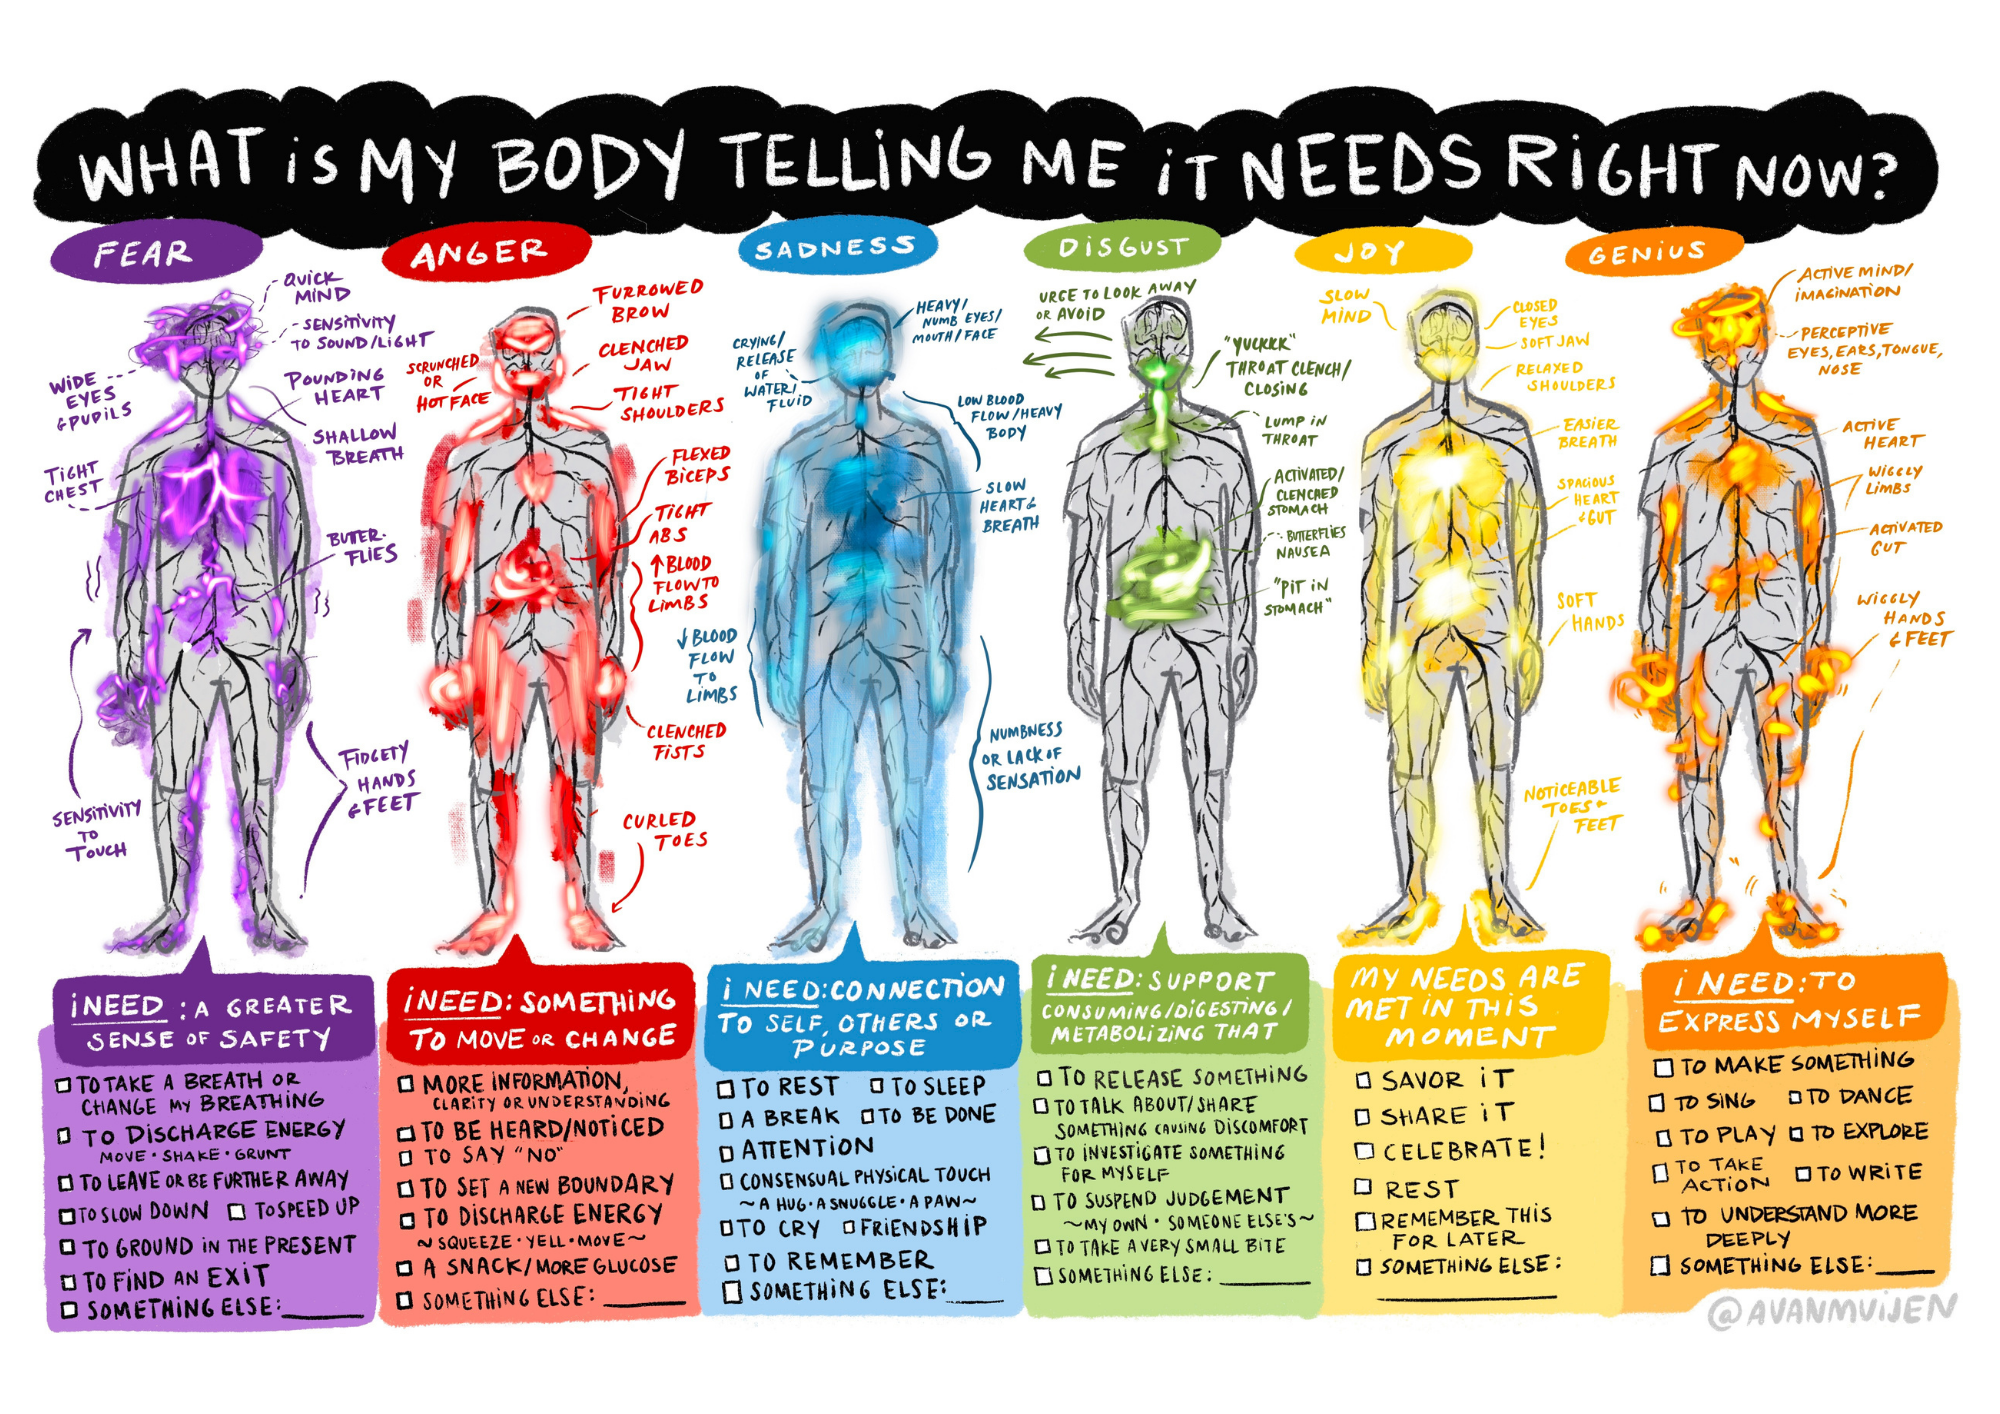 WHAT iS MY BODY TELLiNG ME iT NEEDS RiGHT NOW?
FEAR
QUiCK
MIND
SENSiTiVITY
TO SOUND/LiGHT
WiDE
EYES
& PUPiLS
POUNDiNG
HEART
SHALLOW
BREATH
TiGHT
CHEST
BUTER-
FLiES
SENSiTiViTY
TO
TOUCH
FiDGETY
HANDS
& FEET
iNEED: A GREATER
SENSE OF SAFETY
TO TAKE A BREATH OR
CHANGE MY BREATHING
TO DISCHARGE ENERGY
MOVE · SHAKE · GRUNT
TO LEAVE OR BE FURTHER AWAY
TO SLOW DOWN TO SPEED UP
TO GROUND iN THE PRESENT
TO FiND AN EXiT
SOMETHING ELSE:______
ANGER
FURROWED
BROW
CLENCHED
JAW
SCRUNCHED
OR
HOT FACE
TiGHT
SHOULDERS
FLEXED
BiCEPS
TiGHT
ABS
↑ BLOOD
FLOW TO
LiMBS
CLENCHED
FiSTS
CURLED
TOES
iNEED: SOMETHiNG
TO MOVE OR CHANGE
MORE iNFORMATiON,
CLARITY OR UNDERSTANDING
TO BE HEARD/NOTiCED
TO SAY "NO"
TO SET A NEW BOUNDARY
TO DISCHARGE ENERGY
~ SQUEEZE · YELL · MOVE ~
A SNACK/MORE GLUCOSE
SOMETHiNG ELSE: ______
SADNESS
HEAVY/
NUMB EYES/
MOUTH/FACE
CRYiNG/
RELEASE
OF
WATER/
FLUiD
LOW BLOOD
FLOW/HEAVY
BODY
SLOW
HEART &
BREATH
↓ BLOOD
FLOW
TO
LiMBS
NUMBNESS
OR LACK OF
SENSATiON
i NEED: CONNECTiON
TO SELF, OTHERS OR
PURPOSE
TO REST TO SLEEP
A BREAK TO BE DONE
ATTENTiON
CONSENSUAL PHYSICAL TOUCH
~ A HUG · A SNUGGLE · A PAW ~
TO CRY FRiENDSHiP
TO REMEMBER
SOMETHiNG ELSE:____
DiSGUST
URGE TO LOOK AWAY
OR AVOiD
"YUCKKK"
THROAT CLENCH/
CLOSiNG
LUMP iN
THROAT
ACTiVATED/
CLENCHED
STOMACH
BUTTERFLiES
NAUSEA
"PiT iN
STOMACH"
i NEED: SUPPORT
CONSUMiNG/DiGESTiNG/
METABOLiZiNG THAT
TO RELEASE SOMETHiNG
TO TALK ABOUT/SHARE
SOMETHiNG CAUSiNG DISCOMFORT
TO iNVESTIGATE SOMETHiNG
FOR MYSELF
TO SUSPEND JUDGEMENT
~ MY OWN · SOMEONE ELSE'S ~
TO TAKE A VERY SMALL BiTE
SOMETHiNG ELSE: ______
JOY
SLOW
MiND
CLOSED
EYES
SOFT JAW
RELAXED
SHOULDERS
EASiER
BREATH
SPACiOUS
HEART
& GUT
SOFT
HANDS
NOTiCEABLE
TOES &
FEET
MY NEEDS ARE
MET iN THiS
MOMENT
SAVOR iT
SHARE iT
CELEBRATE!
REST
REMEMBER THiS
FOR LATER
SOMETHiNG ELSE:
______
GENiUS
ACTiVE MiND/
iMAGiNATiON
PERCEPTiVE
EYES, EARS, TONGUE,
NOSE
ACTiVE
HEART
WiGGLY
LiMBS
ACTiVATED
GUT
WiGGLY
HANDS
& FEET
i NEED: TO
EXPRESS MYSELF
TO MAKE SOMETHiNG
TO SiNG TO DANCE
TO PLAY TO EXPLORE
TO TAKE
ACTiON TO WRiTE
TO UNDERSTAND MORE
DEEPLY
SOMETHiNG ELSE:____
@AVANMUiJEN